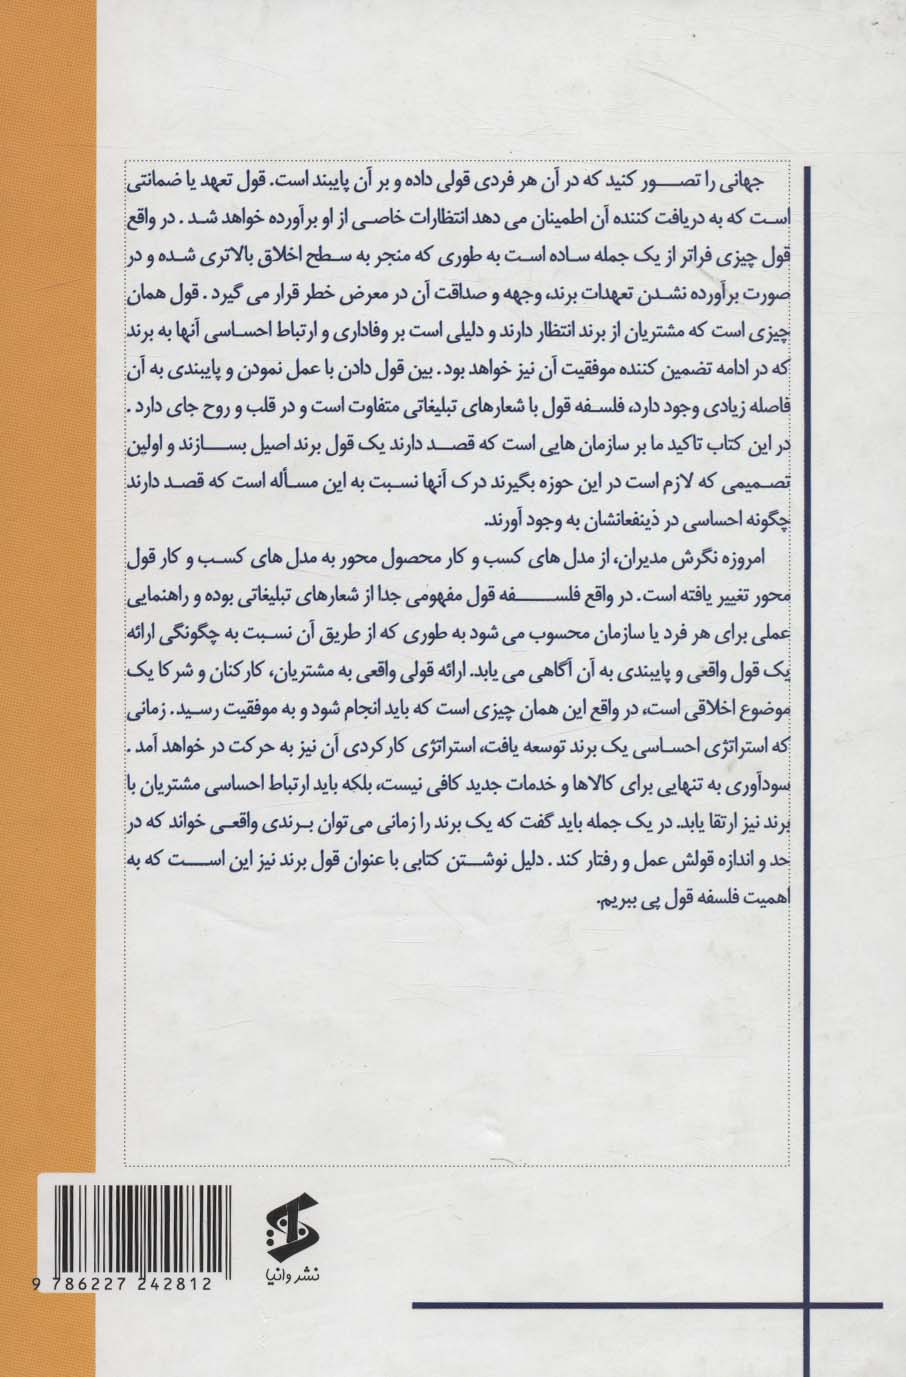 جهانی را تصور کنید که در آن هر فردی قولی داده و بر آن پایبند است. قول تعهد یا ضمانتی
است که به دریافت کننده آن اطمینان می دهد انتظارات خاصی از او برآورده خواهد شد . در واقع
قول چیزی فراتر از یک جمله ساده است به طوری که منجر به سطح اخلاق بالاتری شده و در
صورت برآورده نشدن تعهدات برند، وجهه و صداقت آن در معرض خطر قرار می گیرد . قول همان
چیزی است که مشتریان از برند انتظار دارند و دلیلی است بر وفاداری و ارتباط احساسی آنها به برند
که در ادامه تضمین کننده موفقیت آن نیز خواهد بود . بین قول دادن با عمل نمودن و پایبندی به آن
فاصله زیادی وجود دارد، فلسفه قول با شعارهای تبلیغاتی متفاوت است و در قلب و روح جای دارد .
در این کتاب تاکید ما بر سازمان هایی است که قصد دارند یک قول برند اصیل بسازند و اولین
تصمیمی که لازم است در این حوزه بگیرند درک آنها نسبت به این مسأله است که قصد دارند
چگونه احساسی در ذینفعانشان به وجود آورند.
امروزه نگرش مدیران، از مدل های کسب و کار محصول محور به مدل های کسب و کار قول
محور تغییر یافته است . در واقع فلسفه قول مفهومی جدا از شعارهای تبلیغاتی بوده و راهنمایی
عملی برای هر فرد یا سازمان محسوب می شود به طوری که از طریق آن نسبت به چگونگی ارائه
یک قول واقعی و پایبندی به آن آگاهی می یابد. ارائه قولی واقعی به مشتریان، کارکنان و شرکا یک
موضوع اخلاقی است، در واقع این همان چیزی است که باید انجام شود و به موفقیت رسید . زمانی
که استراتژی احساسی یک برند توسعه یافت، استراتژی کارکردی آن نیز به حرکت در خواهد آمد .
سودآوری به تنهایی برای کالاها و خدمات جدید کافی نیست، بلکه باید ارتباط احساسی مشتریان با
برند نیز ارتقا یابد. در یک جمله باید گفت که یک برند را زمانی می توان برندی واقعی خواند که در
حد و اندازه قولش عمل و رفتار کند . دلیل نوشتن کتابی با عنوان قول برند نیز این است که به
اهمیت فلسفه قول پی ببریم.
نشر وانیا
9 786227 242812